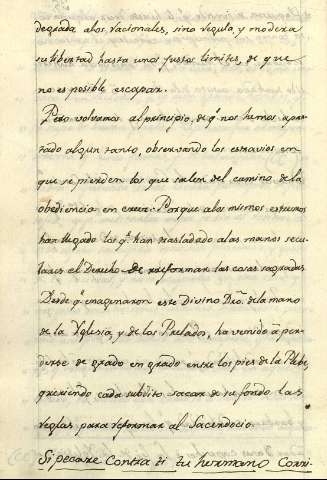 degrada alos Racionales, sino regula, y modera
su libertad hasta unos justos limites, de que
no es posible escapar.
Pero volvamos al principio, de q.^e nos hemos apar-
tado algun tanto, observando los estravios en
que se pierden los que salen del camino de la
obediencia en creer. Porque alos mismos estremos
han llegado los q.^e han trasladado alas manos secu-
lares el Derecho de reformar las cosas sagradas
Desde q.^e imaginaron este Divino Dro. de la mano
de la Yglesia, y de los Prelados, ha venido a per-
derse de grado en grado entre los pies de la Plebe,
queriendo cada subdito sacar de su fondo las
reglas para reformar al Sacerdocio.
Si pecare Contra ti tu hermano Corri-